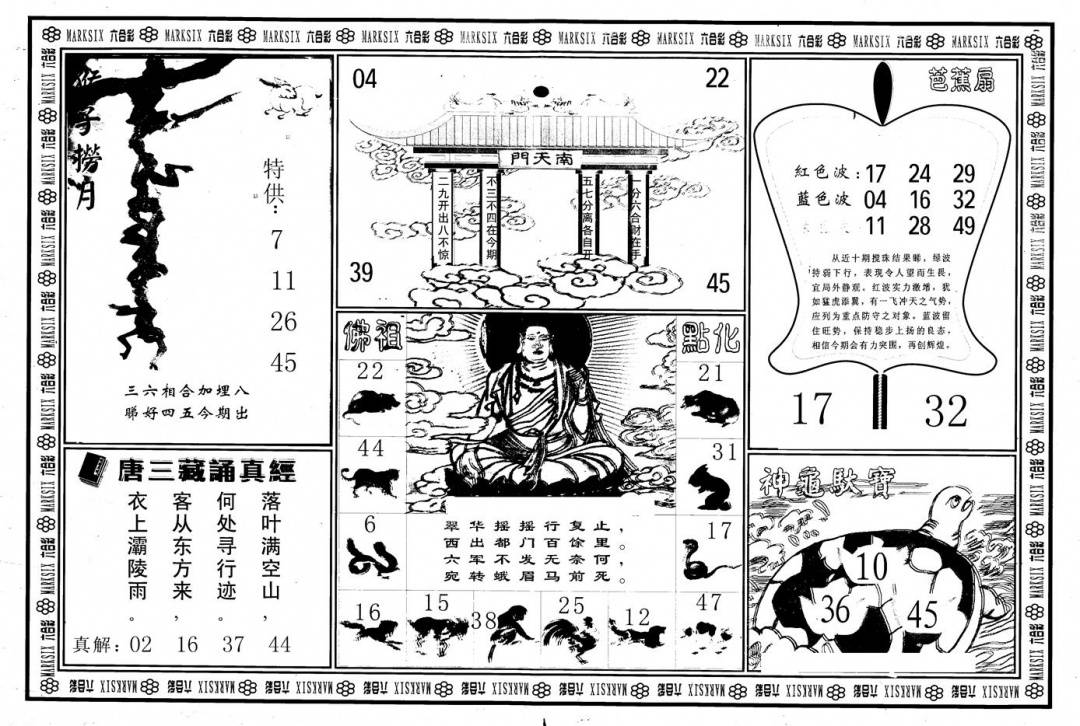 MARKSIX 六合彩 MARKSIX 六合彩 MARKSIX 六合彩 MARKSIX 六合彩 MARKSIX 六合彩 MARKSIX 六合彩 MARKSIX 六合彩 MARKSIX 六合彩 MARKSIX 六合彩 MARKSIX 六合彩
猴子撈月
特供：
7
11
26
45
三六相合加埋八
睇好四五今期出
唐三藏誦真經
落叶满空山，
何处寻行迹。
客从东方来，
衣上灞陵雨。
真解：02 16 37 44
04
22
南天門
二九开出八不惊
不三不四在今期
五七分离各自开
一分六合财在手
39
45
佛祖
點化
22
21
44
31
6
17
翠华摇摇行复止，
西出都门百馀里。
六军不发无奈何，
宛转蛾眉马前死。
16
15
38
25
12
47
芭蕉扇
紅色波：17 24 29
藍色波 04 16 32
11 28 49
从近十期搅珠结果睇，绿波
特弱下行，表现令人望而生畏，
宜局外静观。红波实力激增，犹
如猛虎添翼，有一飞冲天之气势，
应列为重点防守之对象。蓝波留
住旺势，保持稳步上扬的良态，
相信今期会有力突围，再创辉煌。
17
32
神龜馱寶
10
36
45